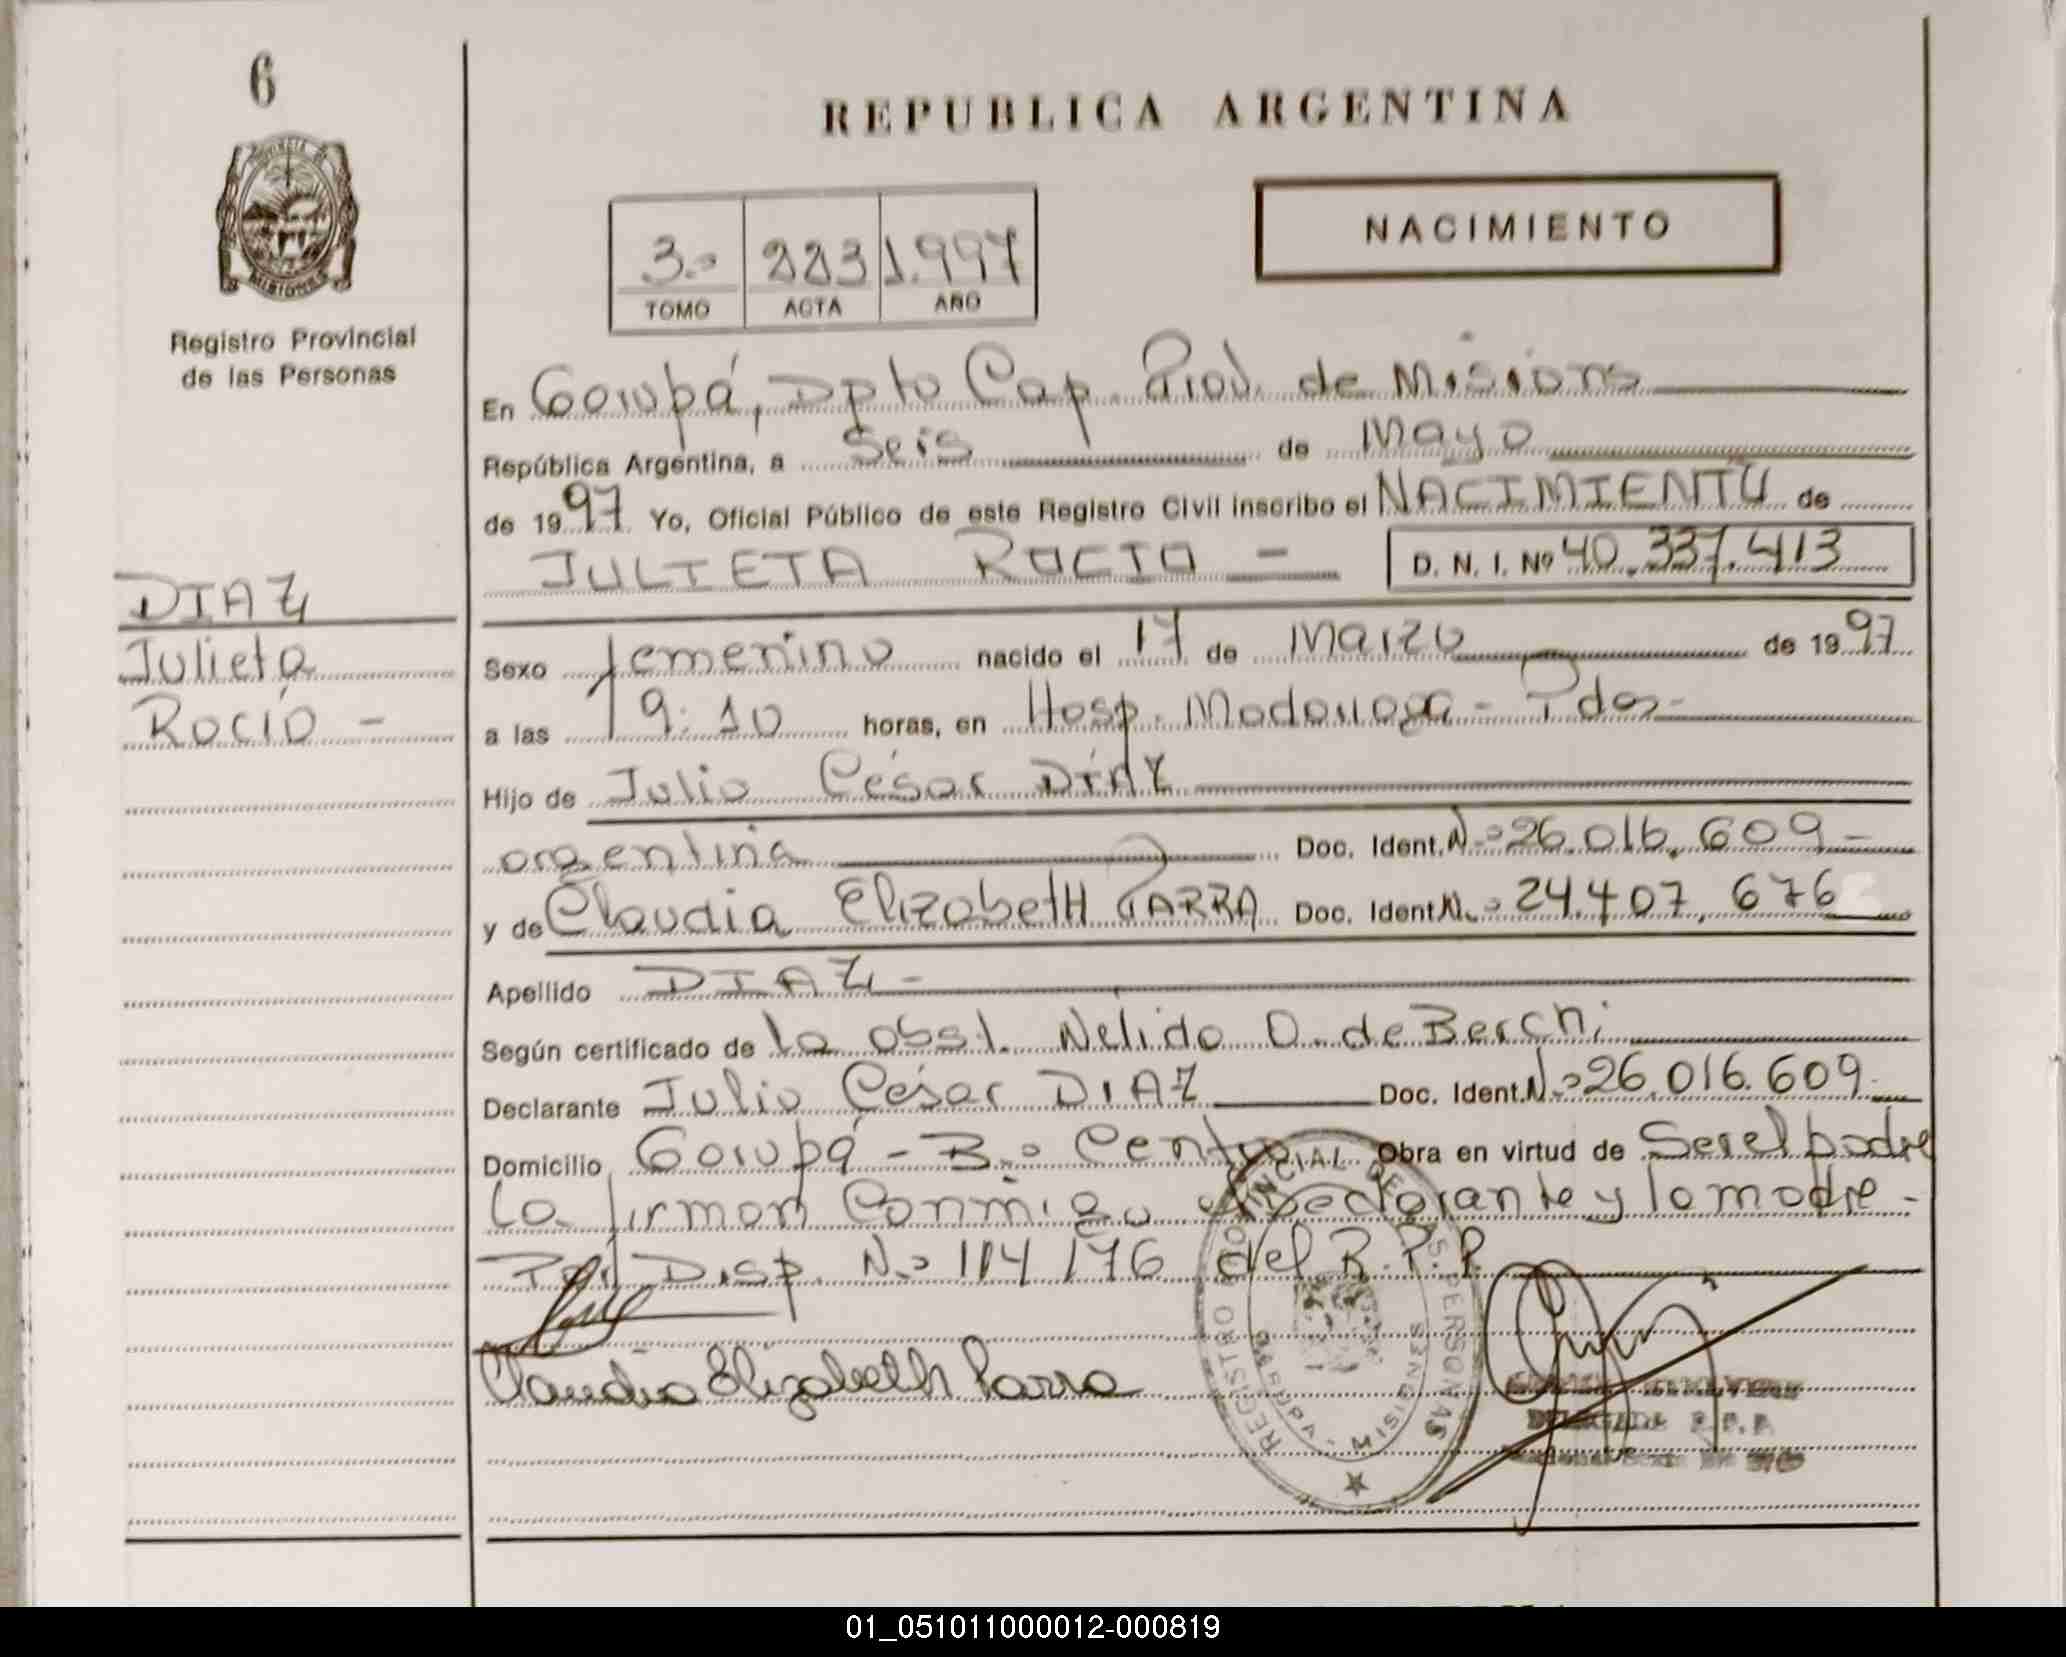 6
REPUBLICA ARGENTINA
PROVINCIA DE
MISIONES
Registro Provincial
de las Personas
NACIMIENTO
3.º 223 1.997
TOMO ACTA AÑO
En Garupá, Dpto Cap. Prov. de Misiones
República Argentina, a Seis de Mayo
de 1997 Yo, Oficial Público de este Registro Civil inscribo el NACIMIENTO de
JULIETA ROCIO - D. N. I. Nº 40.337.413
DIAZ
Julieta
Rocío -
Sexo femenino nacido el 17 de Marzo de 1997
a las 19:10 horas, en Hosp. Madariaga - Pdas -
Hijo de Julio César DÍAZ
argentina Doc. Ident. Nº 26.016.609 -
y de Claudia Elizabeth PARRA Doc. Ident. Nº 24.407.676
Apellido DIAZ -
Según certificado de la obst. Nelida O. de Berchi
Declarante Julio César DIAZ Doc. Ident. Nº 26.016.609
Domicilio Garupá - Bº Centro Obra en virtud de Ser el padre
La firman Conmigo el Declarante y la madre -
Disp. Nº 114/76 del R.P.P.
Claudia Elizabeth Parra
REGISTRO PROVINCIAL DE LAS PERSONAS
MISIONES
DELEGADA R.P.P.
01_051011000012-000819